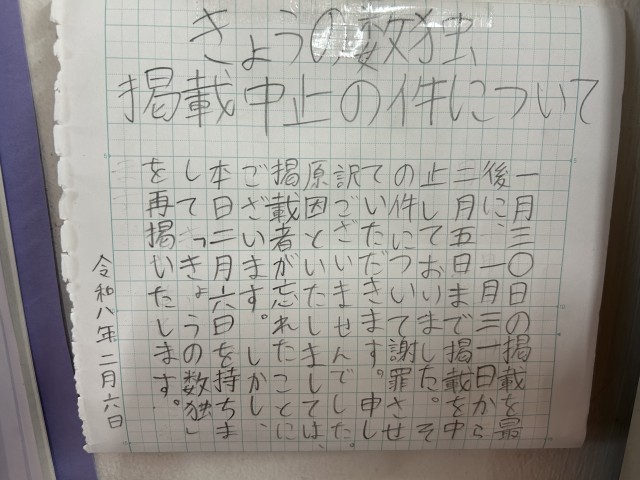 きょうの数独
掲載中止の件について
一月三〇日の掲載を最
後に、一月三一日から
二月五日まで掲載を中
止しておいました。そ
の件について謝罪させ
ていただきます。申し
訳ございませんでした。
原因といたしましては、
掲載者が忘れたことに
ございます。しかし、
本日二月六日を持ちま
して「きょうの数独」
を再掲いたします。
令和八年二月六日